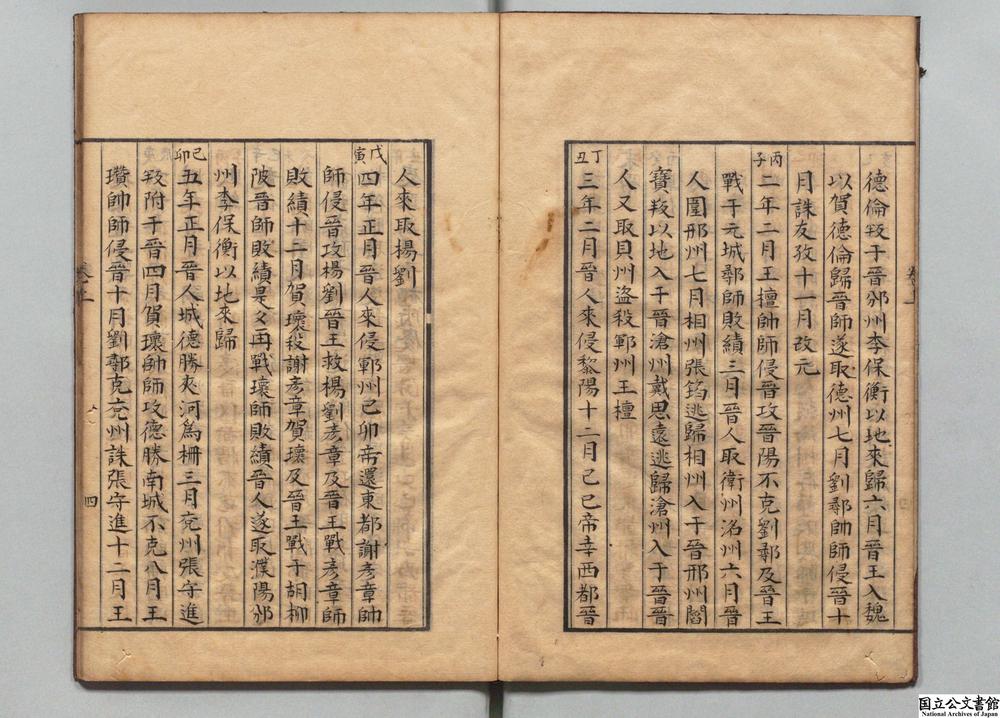 德倫叛于晉邠州李保衡以地來歸六月晉王入魏
以賀德倫歸晉師遂取德州七月劉鄩帥師侵晉十
月誅友孜十一月改元
丙子
二年二月王檀帥師侵晉攻晉陽不克劉鄩及晉王
戰于元城鄩師敗績三月晉人取衛州洺州六月晉
人圍邢州七月相州張筠逃歸相州入于晉邢州閻
寶叛以地入于晉滄州戴思遠逃歸滄州入于晉晉
人又取貝州盜殺鄆州王檀
丁丑
三年二月晉人來侵黎陽十二月己巳帝幸西都晉
人來取楊劉
戊寅
四年正月晉人來侵鄆州己卯帝還東都謝彥章帥
師侵晉攻楊劉晉王救楊劉彥章及晉王戰彥章師
敗績十二月賀瓌殺謝彥章賀瓌及晉王戰于胡柳
陂晉師敗績是夕再戰瓌師敗績晉人遂取濮陽邠
州李保衡以地來歸
己卯
五年正月晉人城德勝夾河爲柵三月兖州張守進
叛附于晉四月賀瓌帥師攻德勝南城不克八月王
瓚帥師侵晉十月劉鄩克兖州誅張守進十二月王
四
国立公文書館
National Archives of Japan